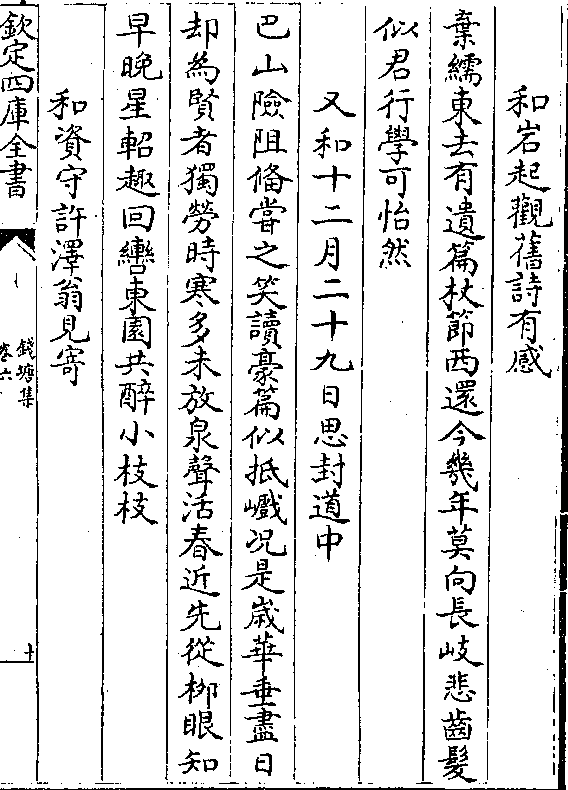 和岩起觀舊詩有感
棄繻東去有遺篇杖節西還今幾年莫向長岐悲齒髮
似君行學可怡然
又和十二月二十九日思封道中
巴山險阻備嘗之笑讀豪篇似抵巇况是嵗華垂盡日
却為賢者獨勞時寒多未放泉聲活春近先從栁眼知
早晚星軺趣回轡東園共醉小枝枝
和資守許澤翁見寄
欽定四庫全書
錢塘集
卷六
十